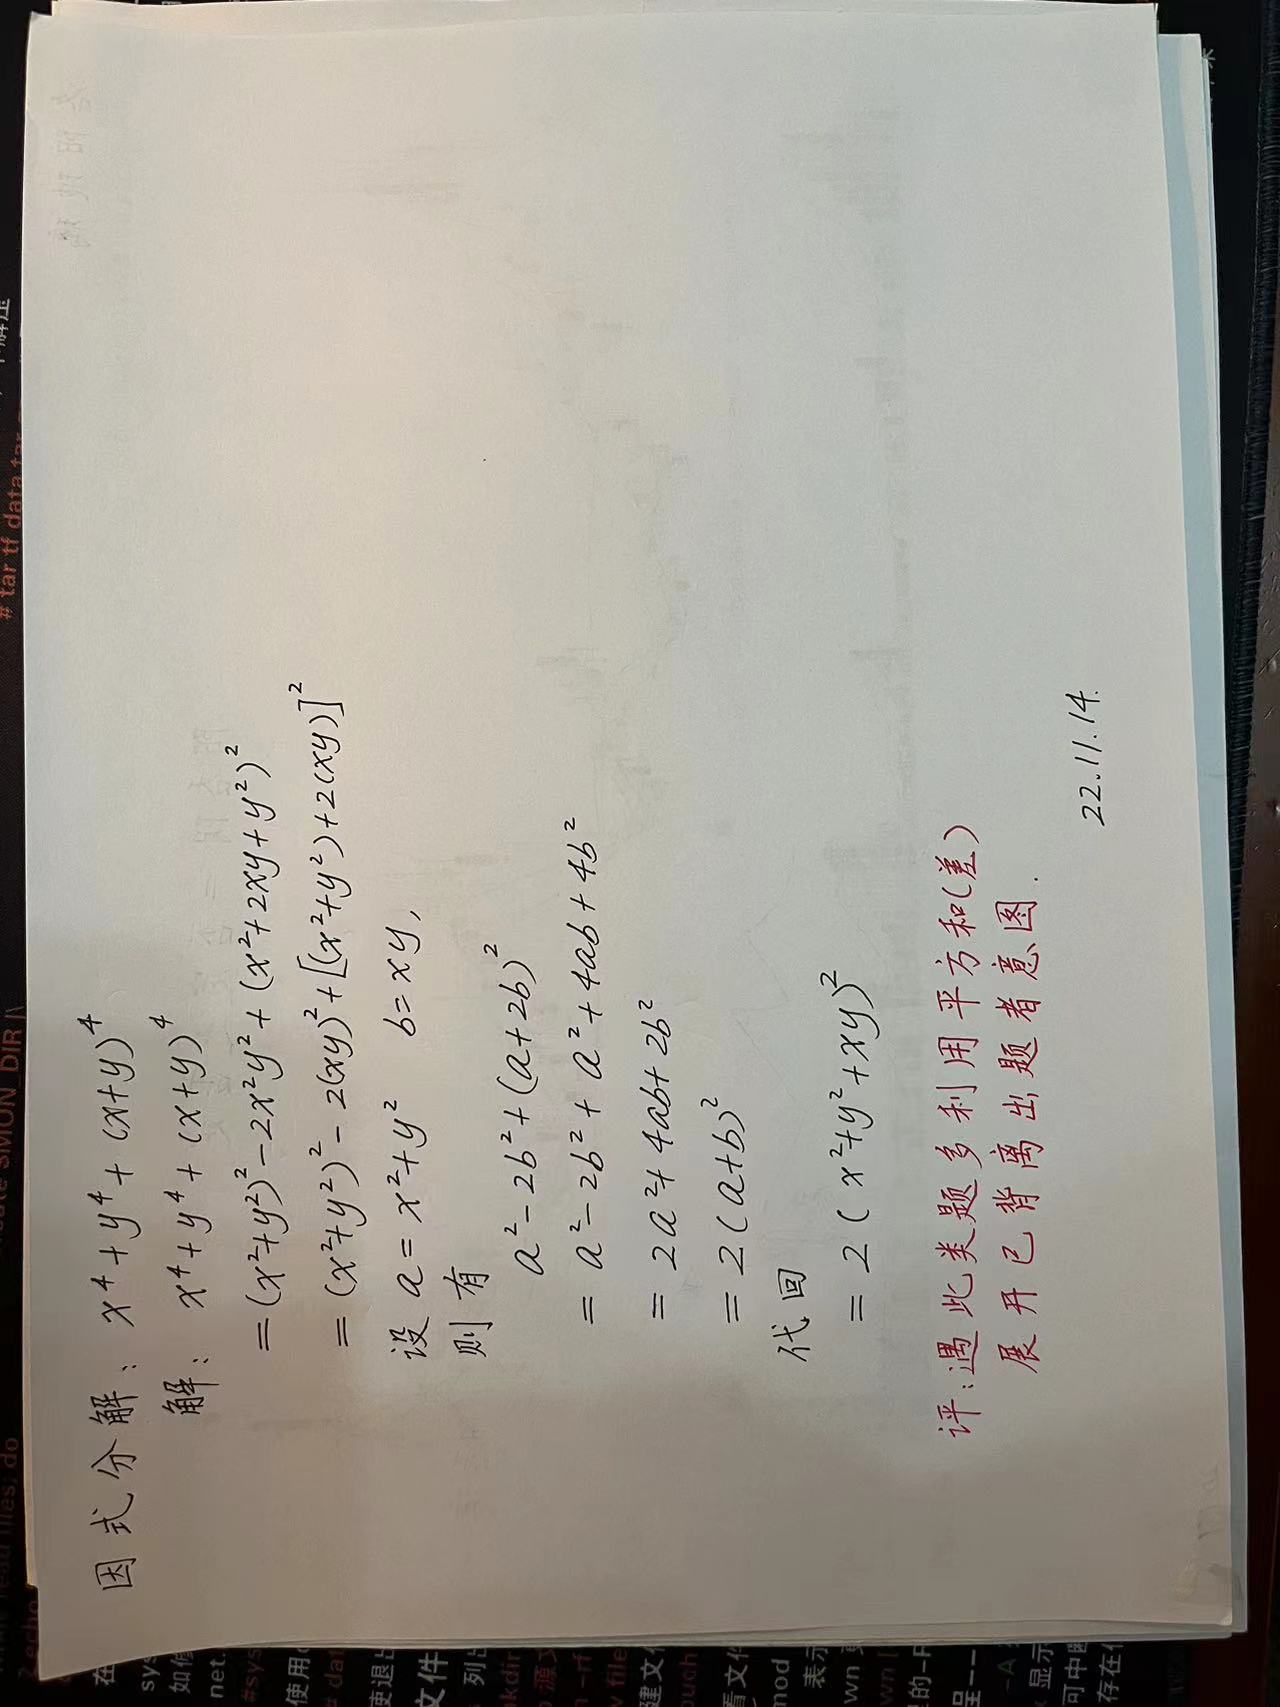 while read files; do
# tar tf data.tar
因式分解: x⁴+y⁴+(x+y)⁴
解: x⁴+y⁴+(x+y)⁴
=(x²+y²)²-2x²y²+(x²+2xy+y²)²
=(x²+y²)²-2(xy)²+[(x²+y²)+2(xy)]²
设 a=x²+y² b=xy,
则有
a²-2b²+(a+2b)²
=a²-2b²+a²+4ab+4b²
=2a²+4ab+2b²
=2(a+b)²
代回
=2(x²+y²+xy)²
评:遇此类题多利用平方和(差)
展开已背离出题者意图.
22.11.14.